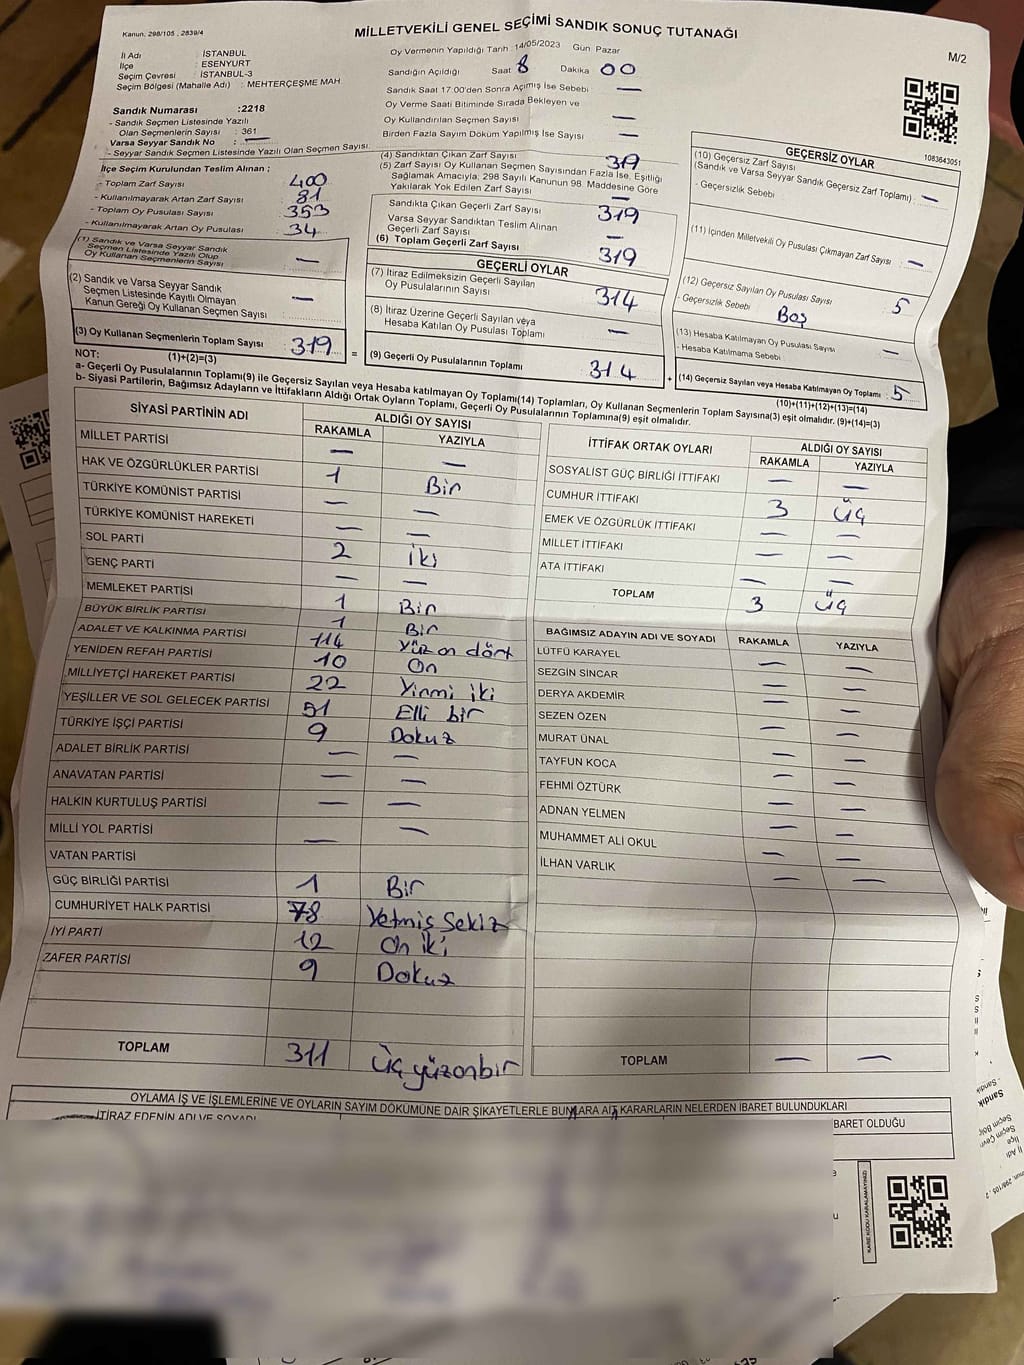 Kanun, 298/105 , 2839/4
MİLLETVEKİLİ GENEL SEÇİMİ SANDIK SONUÇ TUTANAĞI
M/2
İl Adı : İSTANBUL
İlçe : ESENYURT
Seçim Çevresi : İSTANBUL-3
Seçim Bölgesi (Mahalle Adı) : MEHTERÇEŞME MAH
Sandık Numarası :2218
- Sandık Seçmen Listesinde Yazılı
Olan Seçmenlerin Sayısı : 361
Varsa Seyyar Sandık No : —
- Seyyar Sandık Seçmen Listesinde Yazılı Olan Seçmen Sayısı:
Oy Vermenin Yapıldığı Tarih :14/05/2023 Gün Pazar
Sandığın Açıldığı Saat 8 Dakika 00
Sandık Saat 17:00'den Sonra Açımış İse Sebebi —
Oy Verme Saati Bitiminde Sırada Bekleyen ve
Oy Kullandırılan Seçmen Sayısı —
Birden Fazla Sayım Döküm Yapılmış İse Sayısı —
1083643051
İlçe Seçim Kurulundan Teslim Alınan ;
- Toplam Zarf Sayısı 400
- Kullanılmayarak Artan Zarf Sayısı 81
- Toplam Oy Pusulası Sayısı 353
- Kullanılmayarak Artan Oy Pusulası 34
(1) Sandık ve Varsa Seyyar Sandık
Seçmen Listesinde Yazılı Olup
Oy Kullanan Seçmenlerin Sayısı —
(2) Sandık ve Varsa Seyyar Sandık
Seçmen Listesinde Kayıtlı Olmayan
Kanun Gereği Oy Kullanan Seçmen Sayısı —
(3) Oy Kullanan Seçmenlerin Toplam Sayısı 319 =
(1)+(2)=(3)
(4) Sandıktan Çıkan Zarf Sayısı 319
(5) Zarf Sayısı Oy Kullanan Seçmen Sayısından Fazla İse, Eşitliği
Sağlamak Amacıyla, 298 Sayılı Kanunun 98. Maddesine Göre
Yakılarak Yok Edilen Zarf Sayısı —
Sandıkta Çıkan Geçerli Zarf Sayısı 319
Varsa Seyyar Sandıktan Teslim Alınan
Geçerli Zarf Sayısı —
(6) Toplam Geçerli Zarf Sayısı 319
GEÇERLİ OYLAR
(7) İtiraz Edilmeksizin Geçerli Sayılan
Oy Pusulalarının Sayısı 314
(8) İtiraz Üzerine Geçerli Sayılan veya
Hesaba Katılan Oy Pusulası Toplamı —
(9) Geçerli Oy Pusulalarının Toplamı 314 +
GEÇERSİZ OYLAR
(10) Geçersiz Zarf Sayısı
(Sandık ve Varsa Seyyar Sandık Geçersiz Zarf Toplamı) —
- Geçersizlik Sebebi
(11) İçinden Milletvekili Oy Pusulası Çıkmayan Zarf Sayısı —
(12) Geçersiz Sayılan Oy Pusulası Sayısı 5
- Geçersizlik Sebebi Boş
(13) Hesaba Katılmayan Oy Pusulası Sayısı —
- Hesaba Katılmama Sebebi
(14) Geçersiz Sayılan veya Hesaba Katılmayan Oy Toplamı : 5
(10)+(11)+(12)+(13)=(14)
NOT:
a- Geçerli Oy Pusulalarının Toplamı(9) ile Geçersiz Sayılan veya Hesaba katılmayan Oy Toplamı(14) Toplamları, Oy Kullanan Seçmenlerin Toplam Sayısına(3) eşit olmalıdır. (9)+(14)=(3)
b- Siyasi Partilerin, Bağımsız Adayların ve İttifakların Aldığı Ortak Oyların Toplamı, Geçerli Oy Pusulalarının Toplamına(9) eşit olmalıdır.
SİYASİ PARTİNİN ADI ALDIĞI OY SAYISI
RAKAMLA YAZIYLA
MİLLET PARTİSİ — —
HAK VE ÖZGÜRLÜKLER PARTİSİ 1 Bir
TÜRKİYE KOMÜNİST PARTİSİ — —
TÜRKİYE KOMÜNİST HAREKETİ — —
SOL PARTİ 2 iki
GENÇ PARTİ — —
MEMLEKET PARTİSİ 1 Bir
BÜYÜK BİRLİK PARTİSİ 1 Bir
ADALET VE KALKINMA PARTİSİ 114 Yüz on dört
YENİDEN REFAH PARTİSİ 10 On
MİLLİYETÇİ HAREKET PARTİSİ 22 Yirmi iki
YEŞİLLER VE SOL GELECEK PARTİSİ 51 Elli bir
TÜRKİYE İŞÇİ PARTİSİ 9 Dokuz
ADALET BİRLİK PARTİSİ — —
ANAVATAN PARTİSİ — —
HALKIN KURTULUŞ PARTİSİ — —
MİLLİ YOL PARTİSİ — —
VATAN PARTİSİ
GÜÇ BİRLİĞİ PARTİSİ 1 Bir
CUMHURİYET HALK PARTİSİ 78 Yetmiş Sekiz
İYİ PARTİ 12 On iki
ZAFER PARTİSİ 9 Dokuz
TOPLAM 311 Üç yüzonbir
İTTİFAK ORTAK OYLARI ALDIĞI OY SAYISI
RAKAMLA YAZIYLA
SOSYALİST GÜÇ BİRLİĞİ İTTİFAKI — —
CUMHUR İTTİFAKI 3 üç
EMEK VE ÖZGÜRLÜK İTTİFAKI — —
MİLLET İTTİFAKI — —
ATA İTTİFAKI — —
TOPLAM 3 üç
BAĞIMSIZ ADAYIN ADI VE SOYADI RAKAMLA YAZIYLA
LÜTFÜ KARAYEL — —
SEZGİN SİNCAR — —
DERYA AKDEMİR — —
SEZEN ÖZEN — —
MURAT ÜNAL — —
TAYFUN KOCA — —
FEHMİ ÖZTÜRK — —
ADNAN YELMEN — —
MUHAMMET ALİ OKUL — —
İLHAN VARLIK — —
TOPLAM — —
OYLAMA İŞ VE İŞLEMLERİNE VE OYLARIN SAYIM DÖKÜMÜNE DAİR ŞİKAYETLERLE BUNLARA AİT KARARLARIN NELERDEN İBARET BULUNDUKLARI
İTİRAZ EDENİN ADI VE SOYADI
BARET OLDUĞU